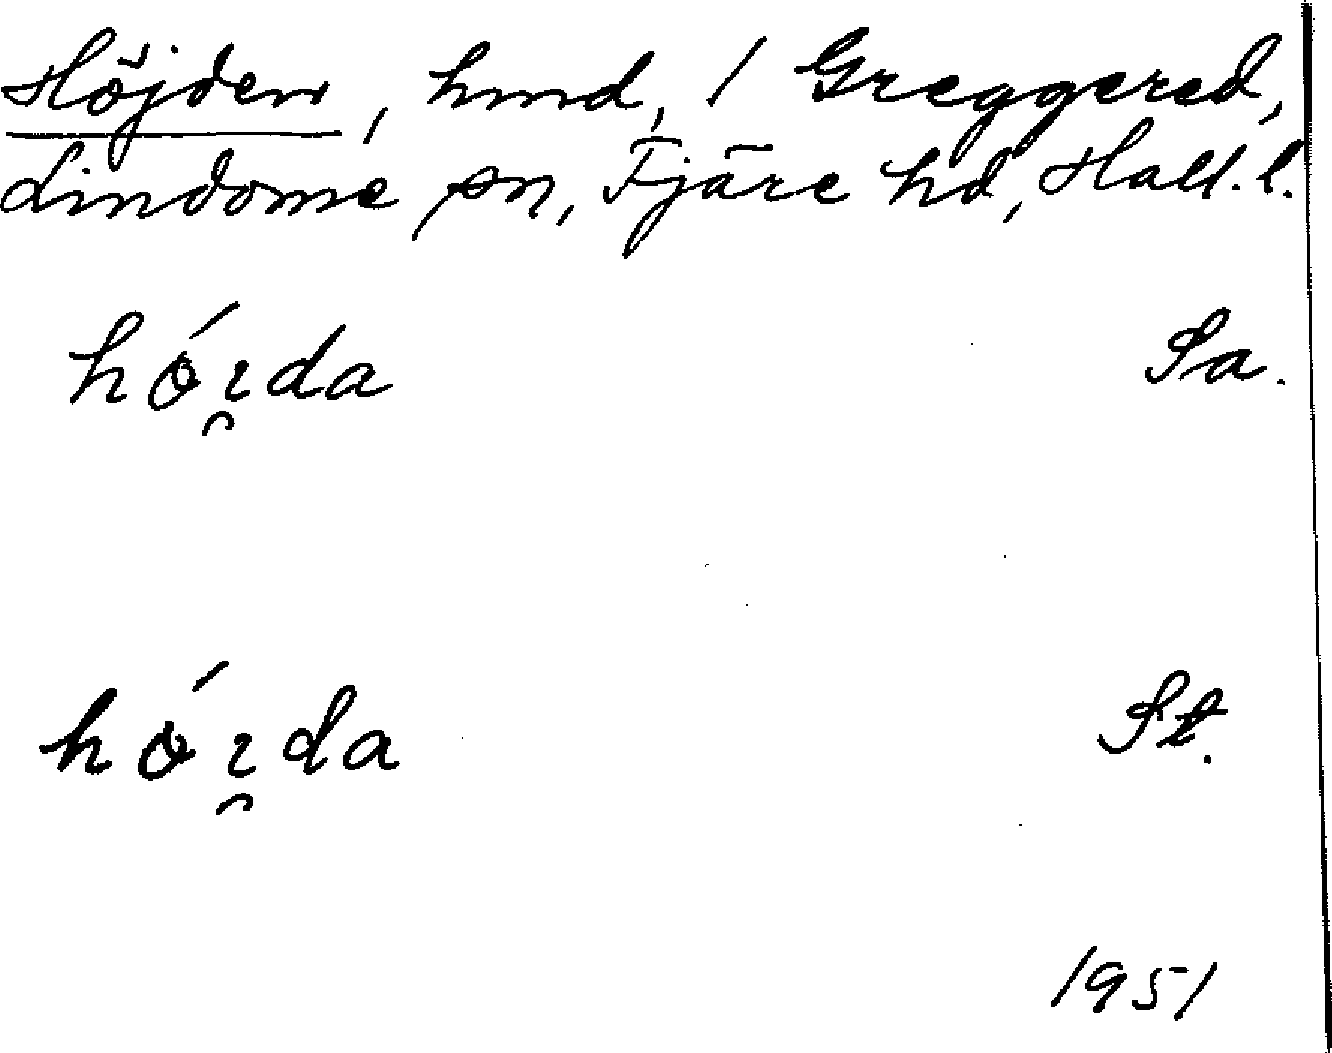 Höjden, hmd, / Greggered,
Lindome sn, Fjäre hd, Hall. l.
Sa.
St.
1951